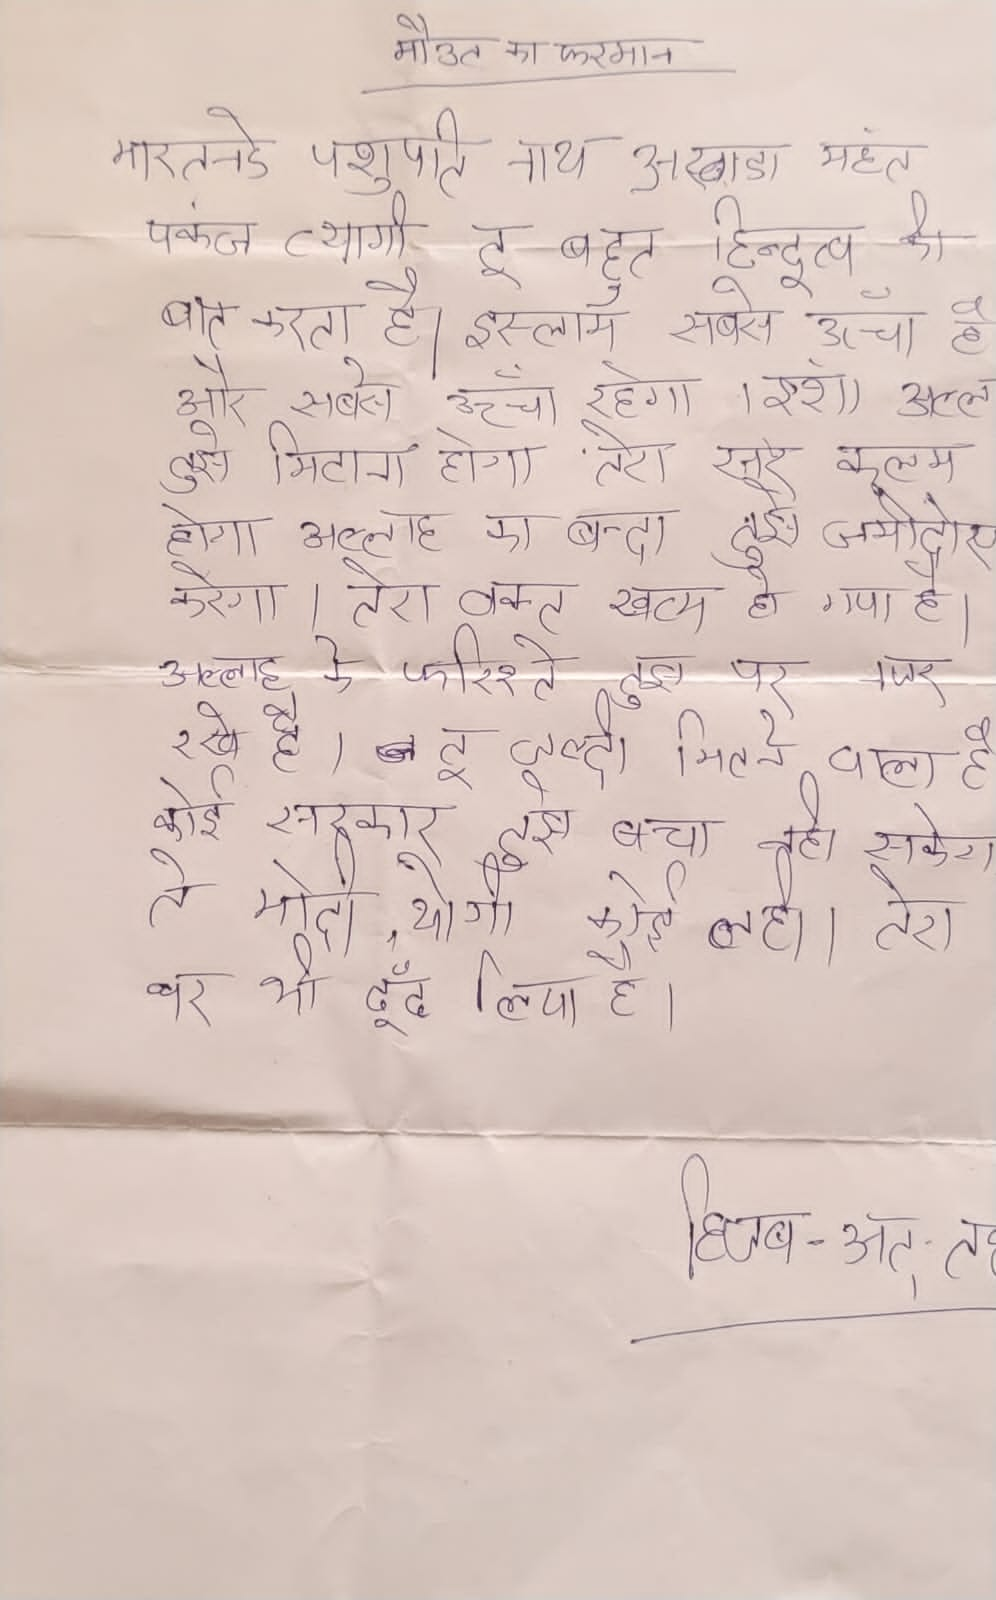 मौउत का फरमान
मारतनडे पशुपति नाथ अखाडा महंत
पकंज त्यागी तू बहुत हिन्दुत्व की
बात करता है। इस्लाम सबसे ऊँचा है
और सबसे ऊँचा रहेगा । इंशा अल्ल
तुझे मिटाना होगा तेरा सर कलम
होगा अल्लाह का बन्दा तुझे जमीदोस
करेगा । तेरा वक्त खत्म हो गया है।
अल्लाह के फरिश्ते तुझ पर नजर
रखे है । तू जल्दी मितने वाला है
कोई सरकार तुझे बचा नही सकेग
ते मोदी, योगी कोई नही। तेरा
घर भी ढूँढ लिया है।
हिजब-अत्-तह